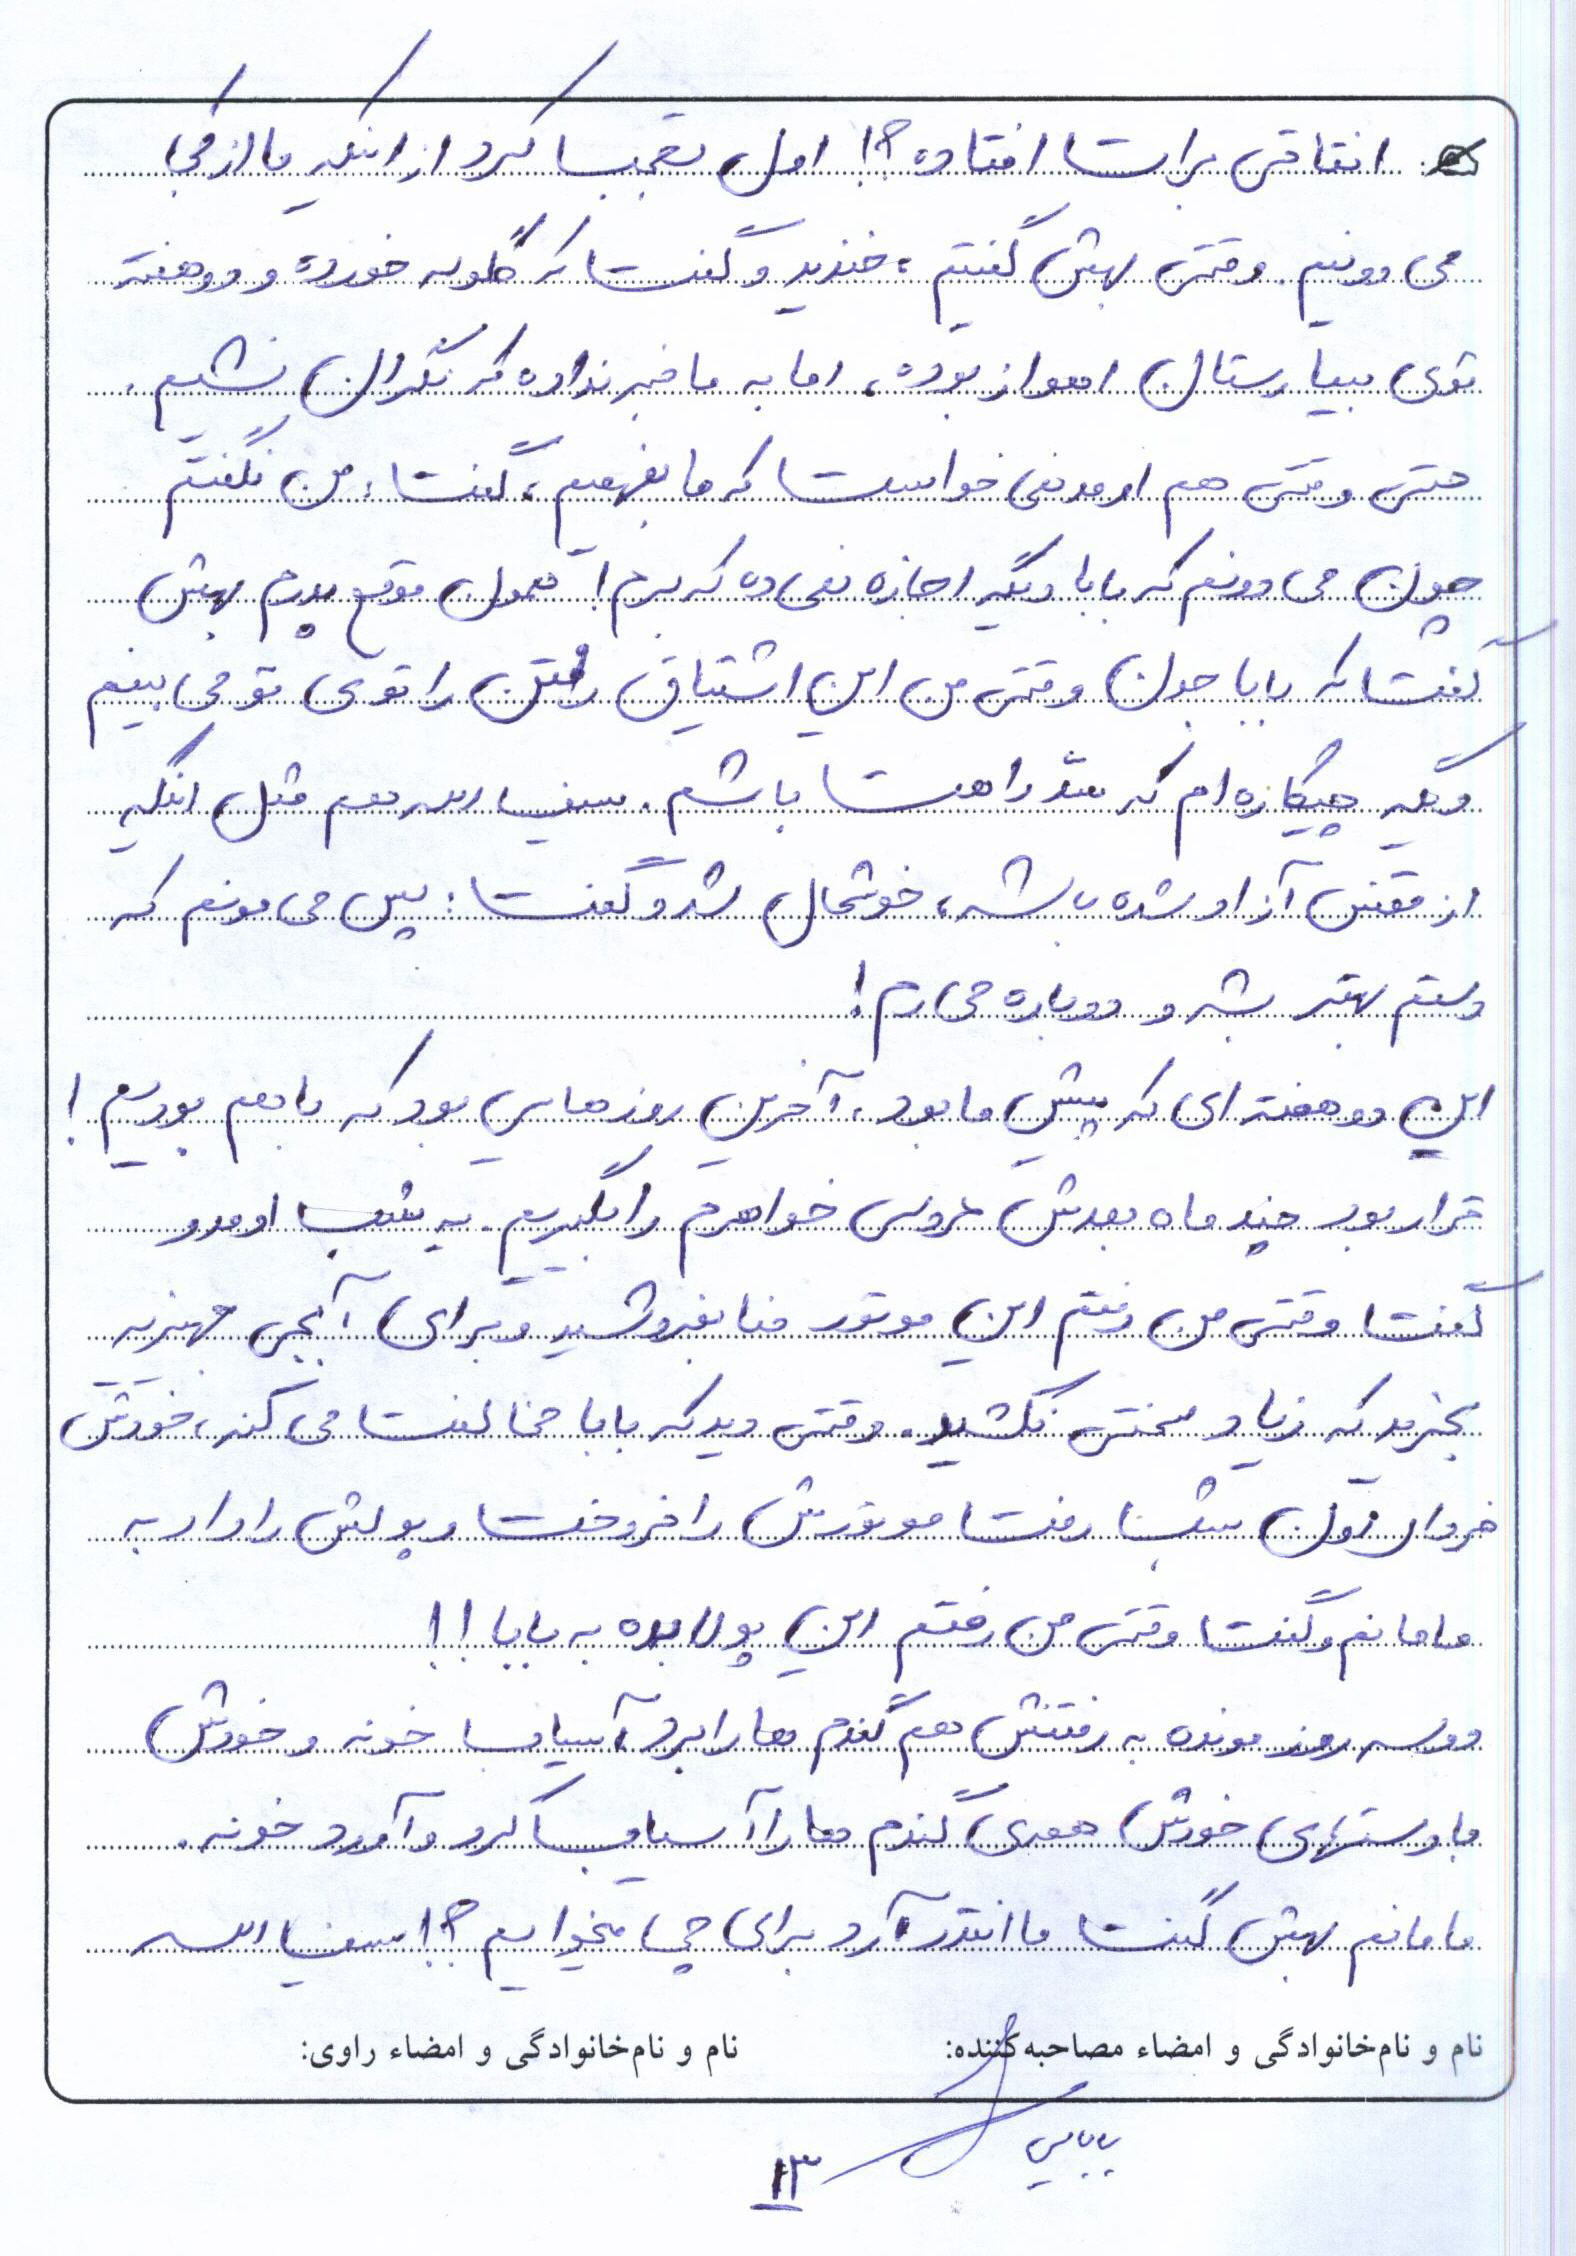 اتفاقی برات افتاده؟! اول تعجب کرد از اینکه ما از کجا
می دونیم. وقتی بهش گفتیم، خندید و گفت که گلوله خورده و دو هفته
توی بیمارستان اهواز بوده، اما به ما خبر نداده که نگران نشیم.
حتی وقتی هم اومد نمی خواست که ما بفهمیم، گفت: من نگفتم
چون می دونم که بابا دیگه اجازه نمی ده که برم! همون موقع پدرم بهش
گفت که بابا جون وقتی من این اشتیاق رفتن را توی تو می بینم
دیگه چیکاره ام که سد راهت باشم. سیف الله هم مثل اینکه
از قفس آزاد شده باشه، خوشحال شد و گفت: پس می مونم که
دستم بهتر بشه و دوباره می رم!
این دو هفته ای که پیش ما بود، آخرین روزهایی بود که با هم بودیم!
قرار بود چند ماه بعدش عروسی خواهرم را بگیریم. یه شب اومد و
گفت وقتی من رفتم این موتور منا بفروشید و برای آبجی جهیزیه
بخرید که زیاد سختی نکشید. وقتی دید که بابا مخالفت می کنه، خودش
فردای اون شب رفت موتورش را فروخت و پولش را داد به
مامانم و گفت وقتی من رفتم این پولا بده به بابا!!
دو سه روز مونده به رفتنش هم گندم ها را برد آسیاب خونه و خودش
با دستهای خودش همه ی گندم ها را آسیاب کرد و آورد خونه.
مامانم بهش گفت ما انقدر آرد برای چی میخوایم؟! سیف الله
نام و نام‌خانوادگی و امضاء مصاحبه‌کننده:
نام و نام‌خانوادگی و امضاء راوی:
بابایی
۱۳